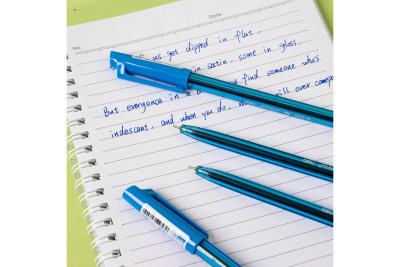 No.
Date.
us got dipped in flat,
in satin, some in gloss.
But everyone in a find someone who's
indescent, and when you do, will ever comp
deli